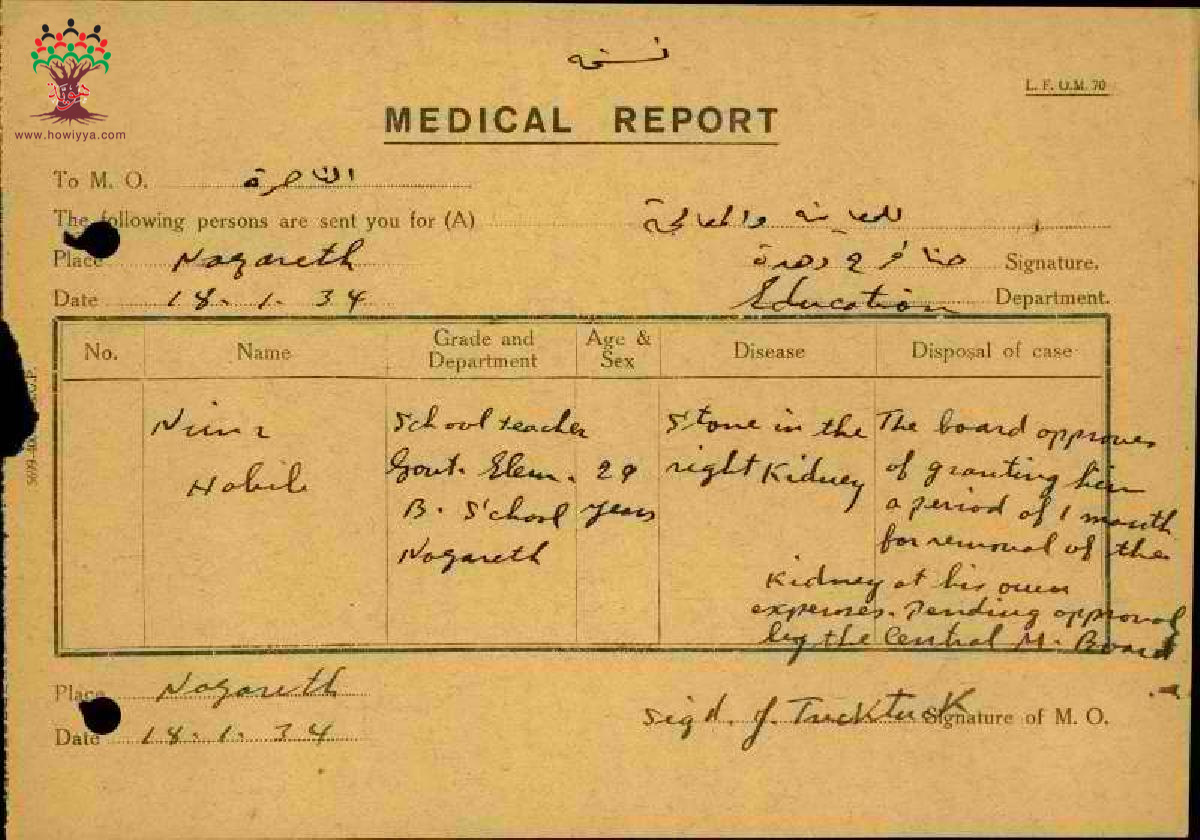 هوية
www.howiyya.com
نسخه
L. F. O.M. 70
MEDICAL REPORT
To M. O. الناصرة
The following persons are sent you for (A) للمعاينه والمعالجة
Place Nazareth
حنا فرح دهدة Signature.
Date 18. 1. 34
Education Department.
No. Name Grade and Department Age & Sex Disease Disposal of case
Nimr Habib
School teacher Govt. Elem. B. School Nazareth
29 years
Stone in the right Kidney
The board approves
of granting him
a period of 1 month
for removal of the
Kidney at his own
expenses. Pending approval
by the Central M. Board
Place Nazareth
Sigd. J. Tucktuck Signature of M. O.
Date 18. 1. 34